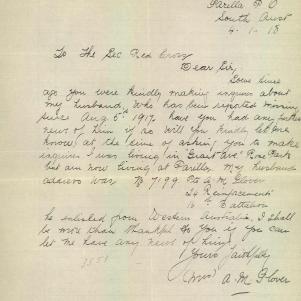 Parilla P O
South Aust
4-1-18
To The Sec Red Cross
Dear Sir,
Some time
ago you were kindly making inquires about
my husband, who has been reported missing
since Aug 6th 1917. have you had any further
news of him if so Will you kindly let me
know at the time of asking you to make
inquires I was living in "Grant Ave" Rose Park
but am now living at Parilla. My husbands
address was No 7199 Pte A. M. Glover
24 Reinforcements
16th Battalion
he enlisted from Western Australia, I shall
be more than thankful to you if you can
let me have any news of him.
Yours faithfully
(Mrs) A. M Glover